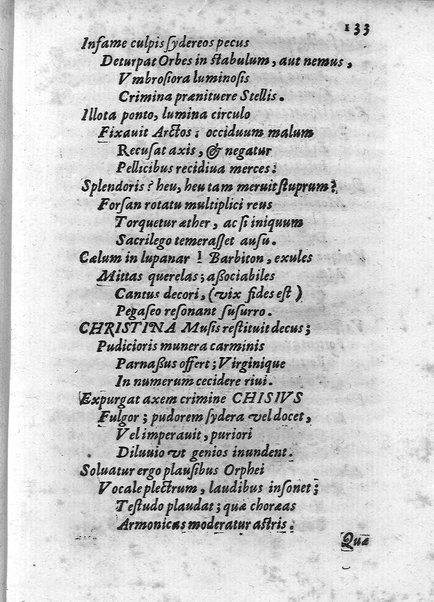 133
Infame culpis sydereos pecus
Deturpat Orbes in stabulum, aut nemus,
Vmbrosiora luminosis
Crimina prænituere Stellis.
Illota ponto, lumina circulo
Fixauit Arctos: occiduum malum
Recusat axis, & negatur
Pellicibus recidiua merces:
Splendoris? heu, heu tam meruit stuprum?
Forsan rotatu multiplici reus
Torquetur æther, ac si iniquum
Sacrilego temerasset ausu.
Cælum in lupanar! Barbiton, exules
Mittas querelas; aßociabiles
Cantus decori, (vix fides est)
Pegaseo resonant susurro.
CHRISTINA Musis restituit decus;
Pudicioris munera carminis
Parnaßus offert; Virginique
In numerum cecidere riui.
Expurgat axem crimine CHISIVS
Fulgor; pudorem sydera vel docet,
Vel imperauit, puriori
Diluuio vt genios inundent.
Soluatur ergo plausibus Orphei
Vocale plectrum, laudibus insonet;
Testudo plaudat; quæ choræas
Armonicas moderatur astris.
Quæ